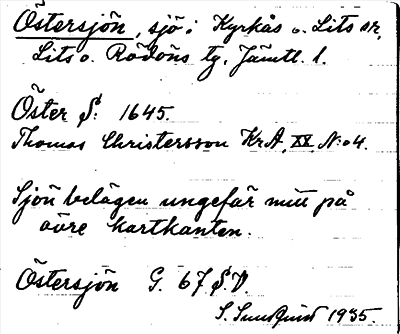 Östersjön, sjö i Kyrkås o. Lits snr,
Lits o. Rödöns tg, Jämtl. l.
Öster S: 1645.
Thomas Christersson KrA, XX, N:o 4.
Sjön belägen ungefär mitt på
övre kartkanten.
Östersjön G. 67 SV.
S. Sundquist 1935.